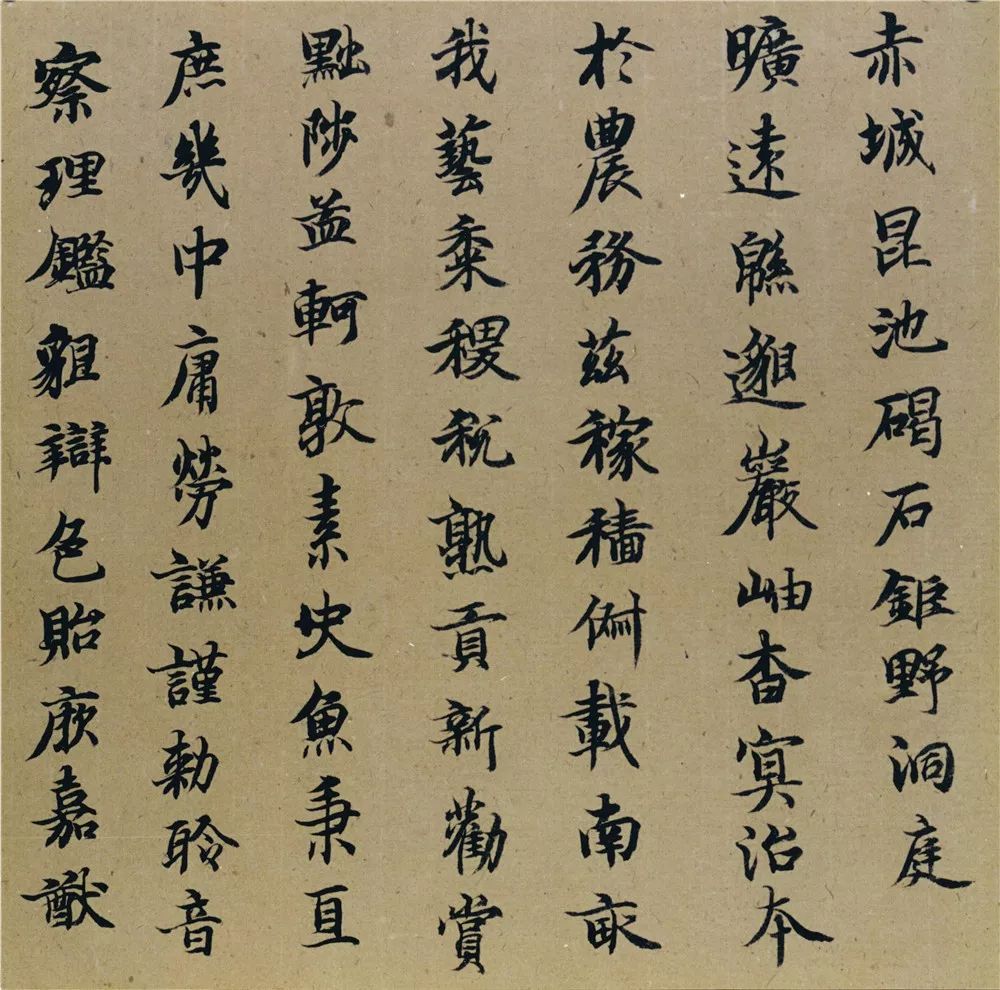 赤城昆池碣石鉅野洞庭
曠遠緜邈巖岫杳冥治本
於農務茲稼穡俶載南畝
我藝黍稷稅熟貢新勸賞
黜陟孟軻敦素史魚秉直
庶幾中庸勞謙謹勅聆音
察理鑑貌辯色貽厥嘉猷